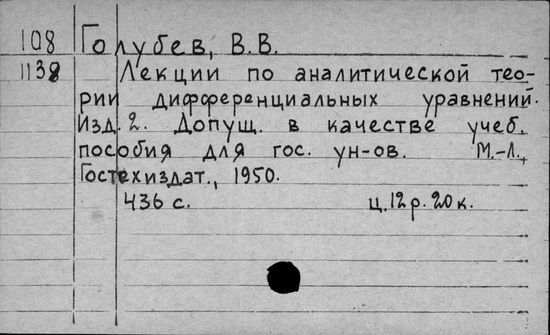 108 Голубев, В.В.
1138 Лекции по аналитической тео-
рии дифференциальных уравнений.
Изд. 2. Допущ. в качестве учеб.
пособия для гос. ун-ов. М.-Л.,
Гостехиздат., 1950.
436 с. ц. 12 р. 20 к.